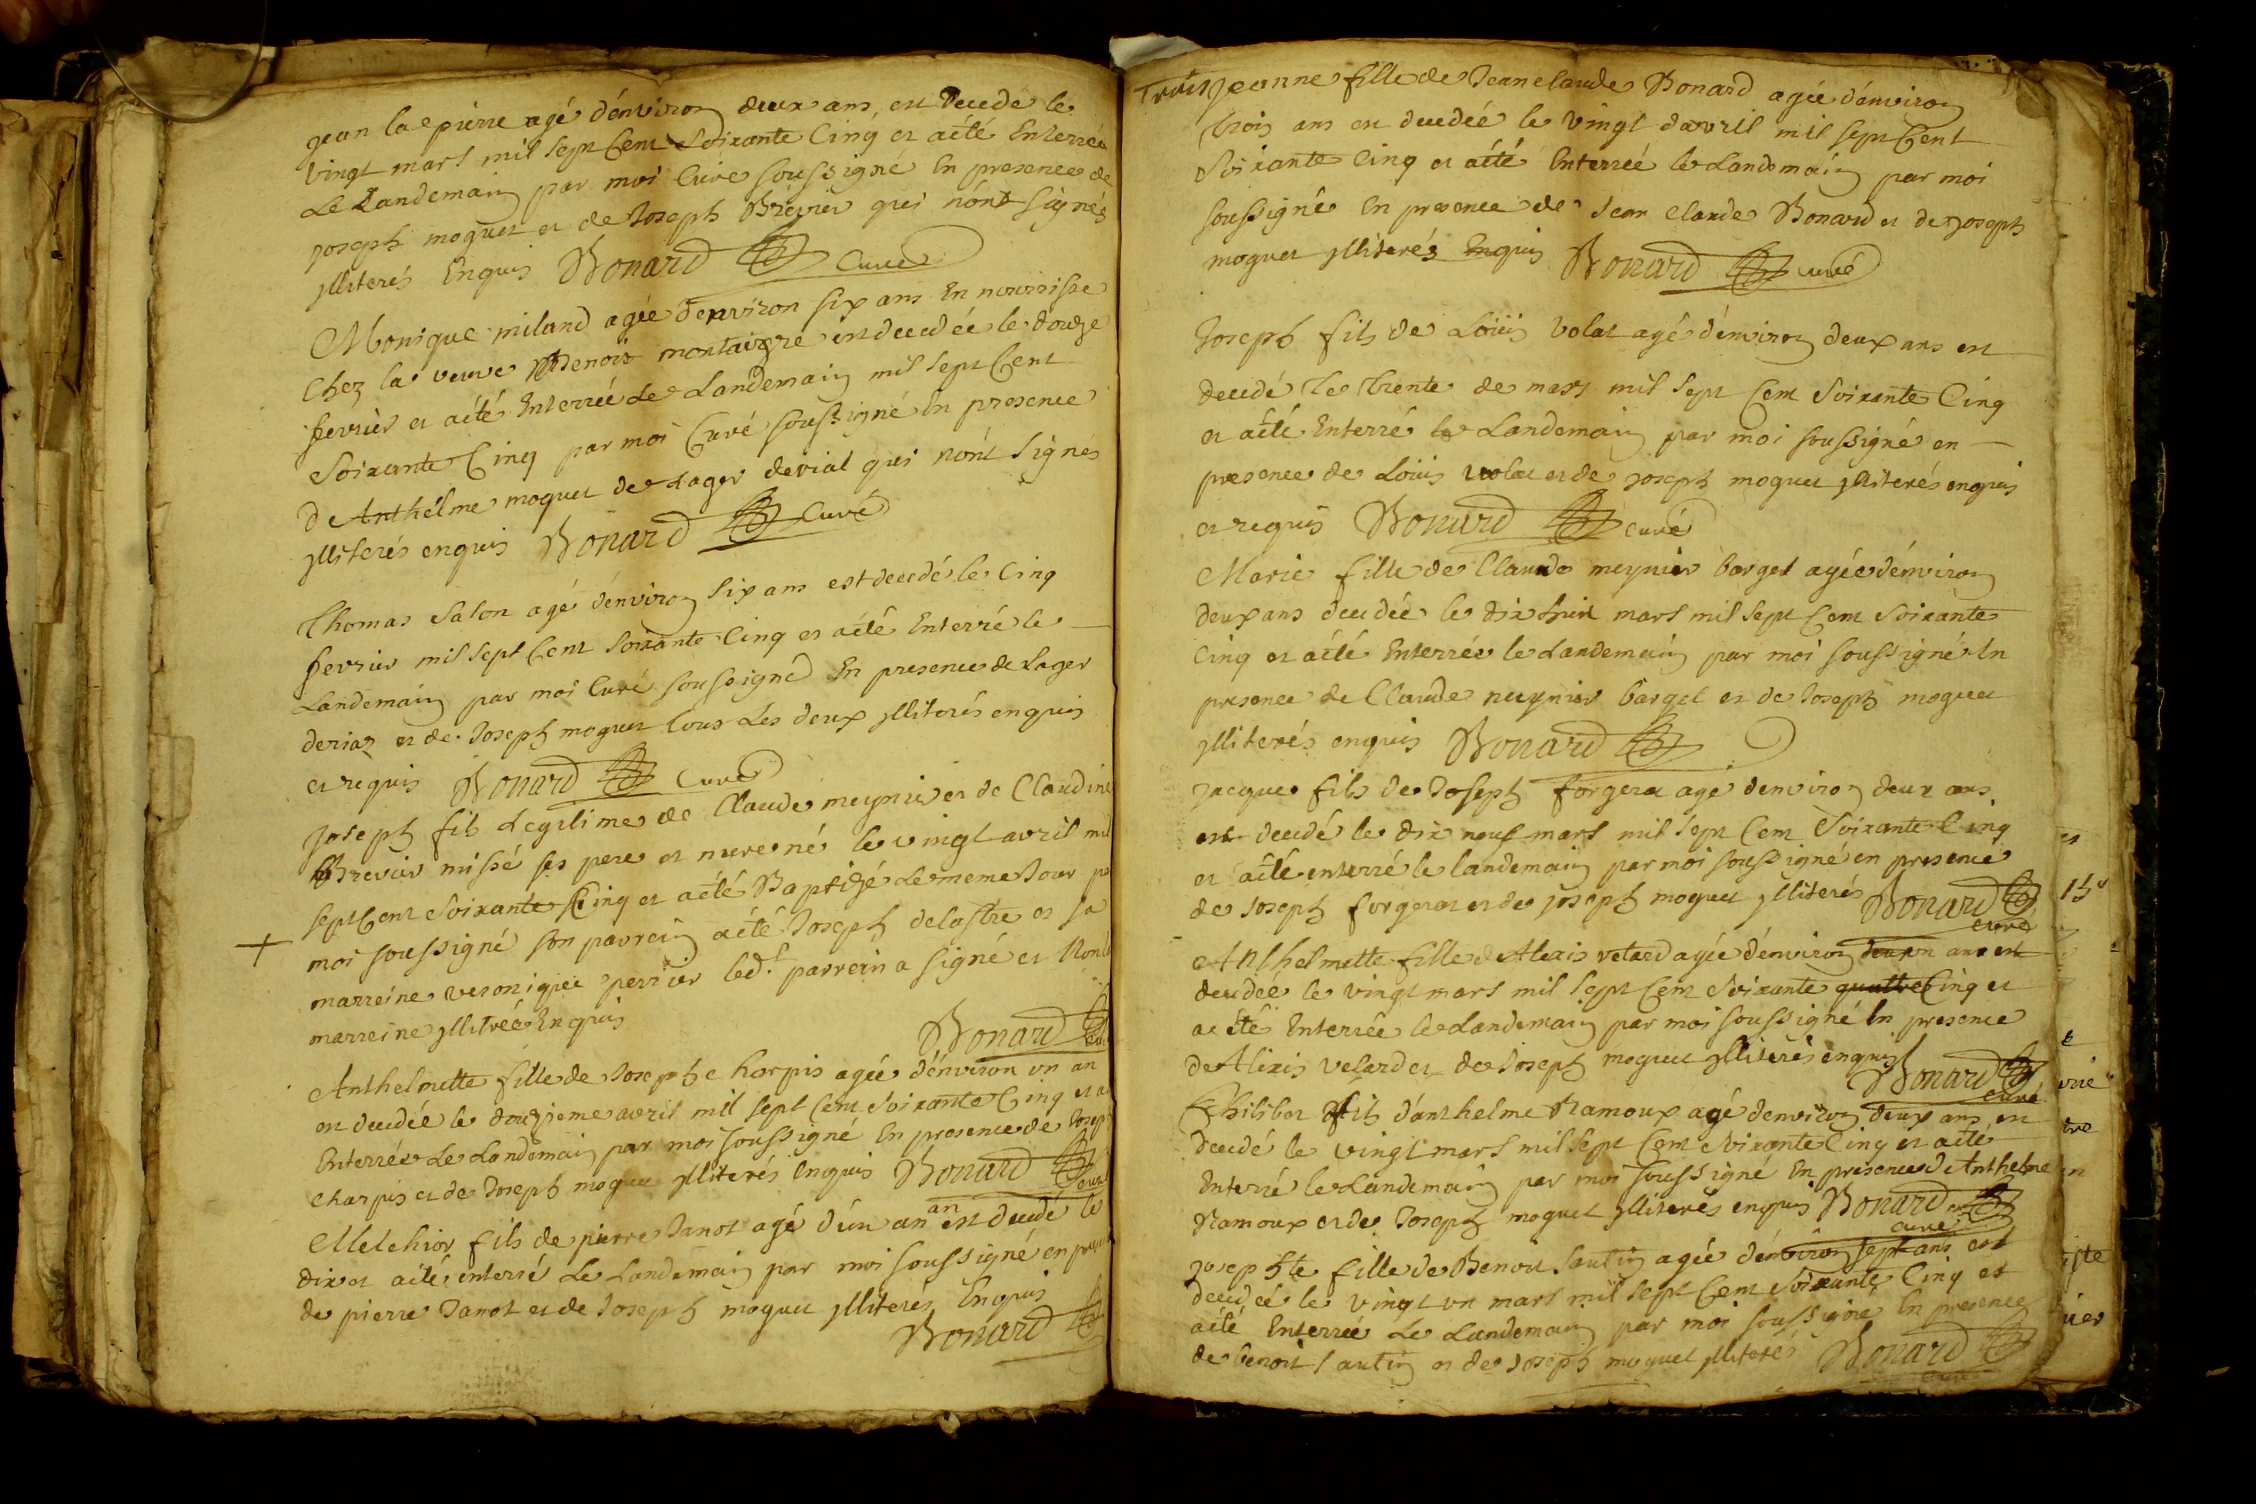 jean la pierre agé d'environ deux ans, est decedé le
vingt mars mil sept Cent soixante Cinq et a été Enterré
Le Landemain par moi Curé soussigné En presence de
joseph moguet et de Joseph Breynier qui n'ônt signés
jlliterés Enquis Bonard Curé
Monique miland agée d'environ six ans En nourrisse
Chez la veuve Benoit montaigre est decedée le douze
fevrier et a été Enterrée Le Landemain mil sept Cent
Soixante Cinq par moi Curé soussigné En presence
D'Anthelme moguet de Lager derial qui n'ônt signés
jlliterés enquis Bonard Curé
Thomas Salon agé d'environ six ans est decedé le Cinq
fevrier mil sept Cent soixante Cinq et a été Enterré le
Landemain par moi Curé soussigné En presence de Lager
deriaz et de Joseph moguet tous Les deux jlliterés enquis
et requis Bonard Curé
Joseph fils Legitime de Claude meynier et de Claudine
missé ses pere et mere né le vingt avril mil
sept Cent Soixante Cinq et a été Baptizé Le meme Jour
moi soussigné son parrein a été Joseph delastre et sa
marreine veronique perrier led.t parrein a signé et Non la
marreine jllitrée Enquis
Bonard
Anthelmette fille de Joseph Charpis agée d'environ un an
est decedée le douzieme avril mil sept Cent Soixante Cinq et a
Enterrée Le Landemain par moi soussigné En presence de Josep
Charpis et de Joseph moguet jlliterés Enquis Bonard Curé
Melchior fils de pierre Janot agé d'un an est decedé le
an
dix et a été enterré Le Landemain par moi soussigné en
de pierre Janot et de Joseph moguet jlliterés Enquis
Bonard
Trois Jeanne fille de Jean Claude Bonard agée d'environ
trois ans est decedée le vingt d'avril mil sept Cent
Soixante Cinq et a été Enterreé le Landemain par moi
soussigné En presence de Jean Claude Bonard et de Joseph
moguet jlliterés Enquis Bonard curé
Joseph fils de Loüis Volat agé d'environ deux ans est
decedé le trente de mars mil sept Cent Soixante Cinq
et a été Enterré le Landemain par moi soussigné en
presence de Loüis Volat et de Joseph moguet jlliterés enquis
et requis Bonard curé
Marie fille de Claude meynier barget agée d'environ
deux ans decedée le dix huit mars mil sept Cent Soixante
Cinq et a été Enterrée le Landemain par moi soussigné En
presence de Claude meynier barget et de Joseph moguet
jlliterés enquis Bonard
Jacque fils de Joseph forgerat agé d'environ deux ans
est decedé le dix neuf mars mil sept Cent Soixante Cinq
et a été enterré le landemain par moi soussigné en presence
de Joseph forgerat et de joseph moguet jlliterés Bonard
curé
Anthelmette fille d'Alexis velard agée d'environ un ans est
decedée le vingt mars mil sept Cent Soixante quattre Cinq et
a été Enterrée le Landemain par moi soussigné En presence
d'Alexis velard et de Joseph moguet jlliterés enquis
Bonard curé
Philibert fils d'anthelme Ramoux agé d'environ deux ans est
decedé le vingt mars mil sept Cent Soixante Cinq et a été
Enterré le Landemain par moi soussigné En presence d'Anthelme
Ramoux et de Joseph moguet jlliterés enquis Bonard
curé
josephte fille de Benoit Sautin agée d'environ sept ans est
decedée le vingt un mars mil sept Cent Soixante Cinq et
a été Enterrée Le Landemain par moi soussigné En presence
de benoit Sautin et de Joseph moguet jlliterés Bonard
curé